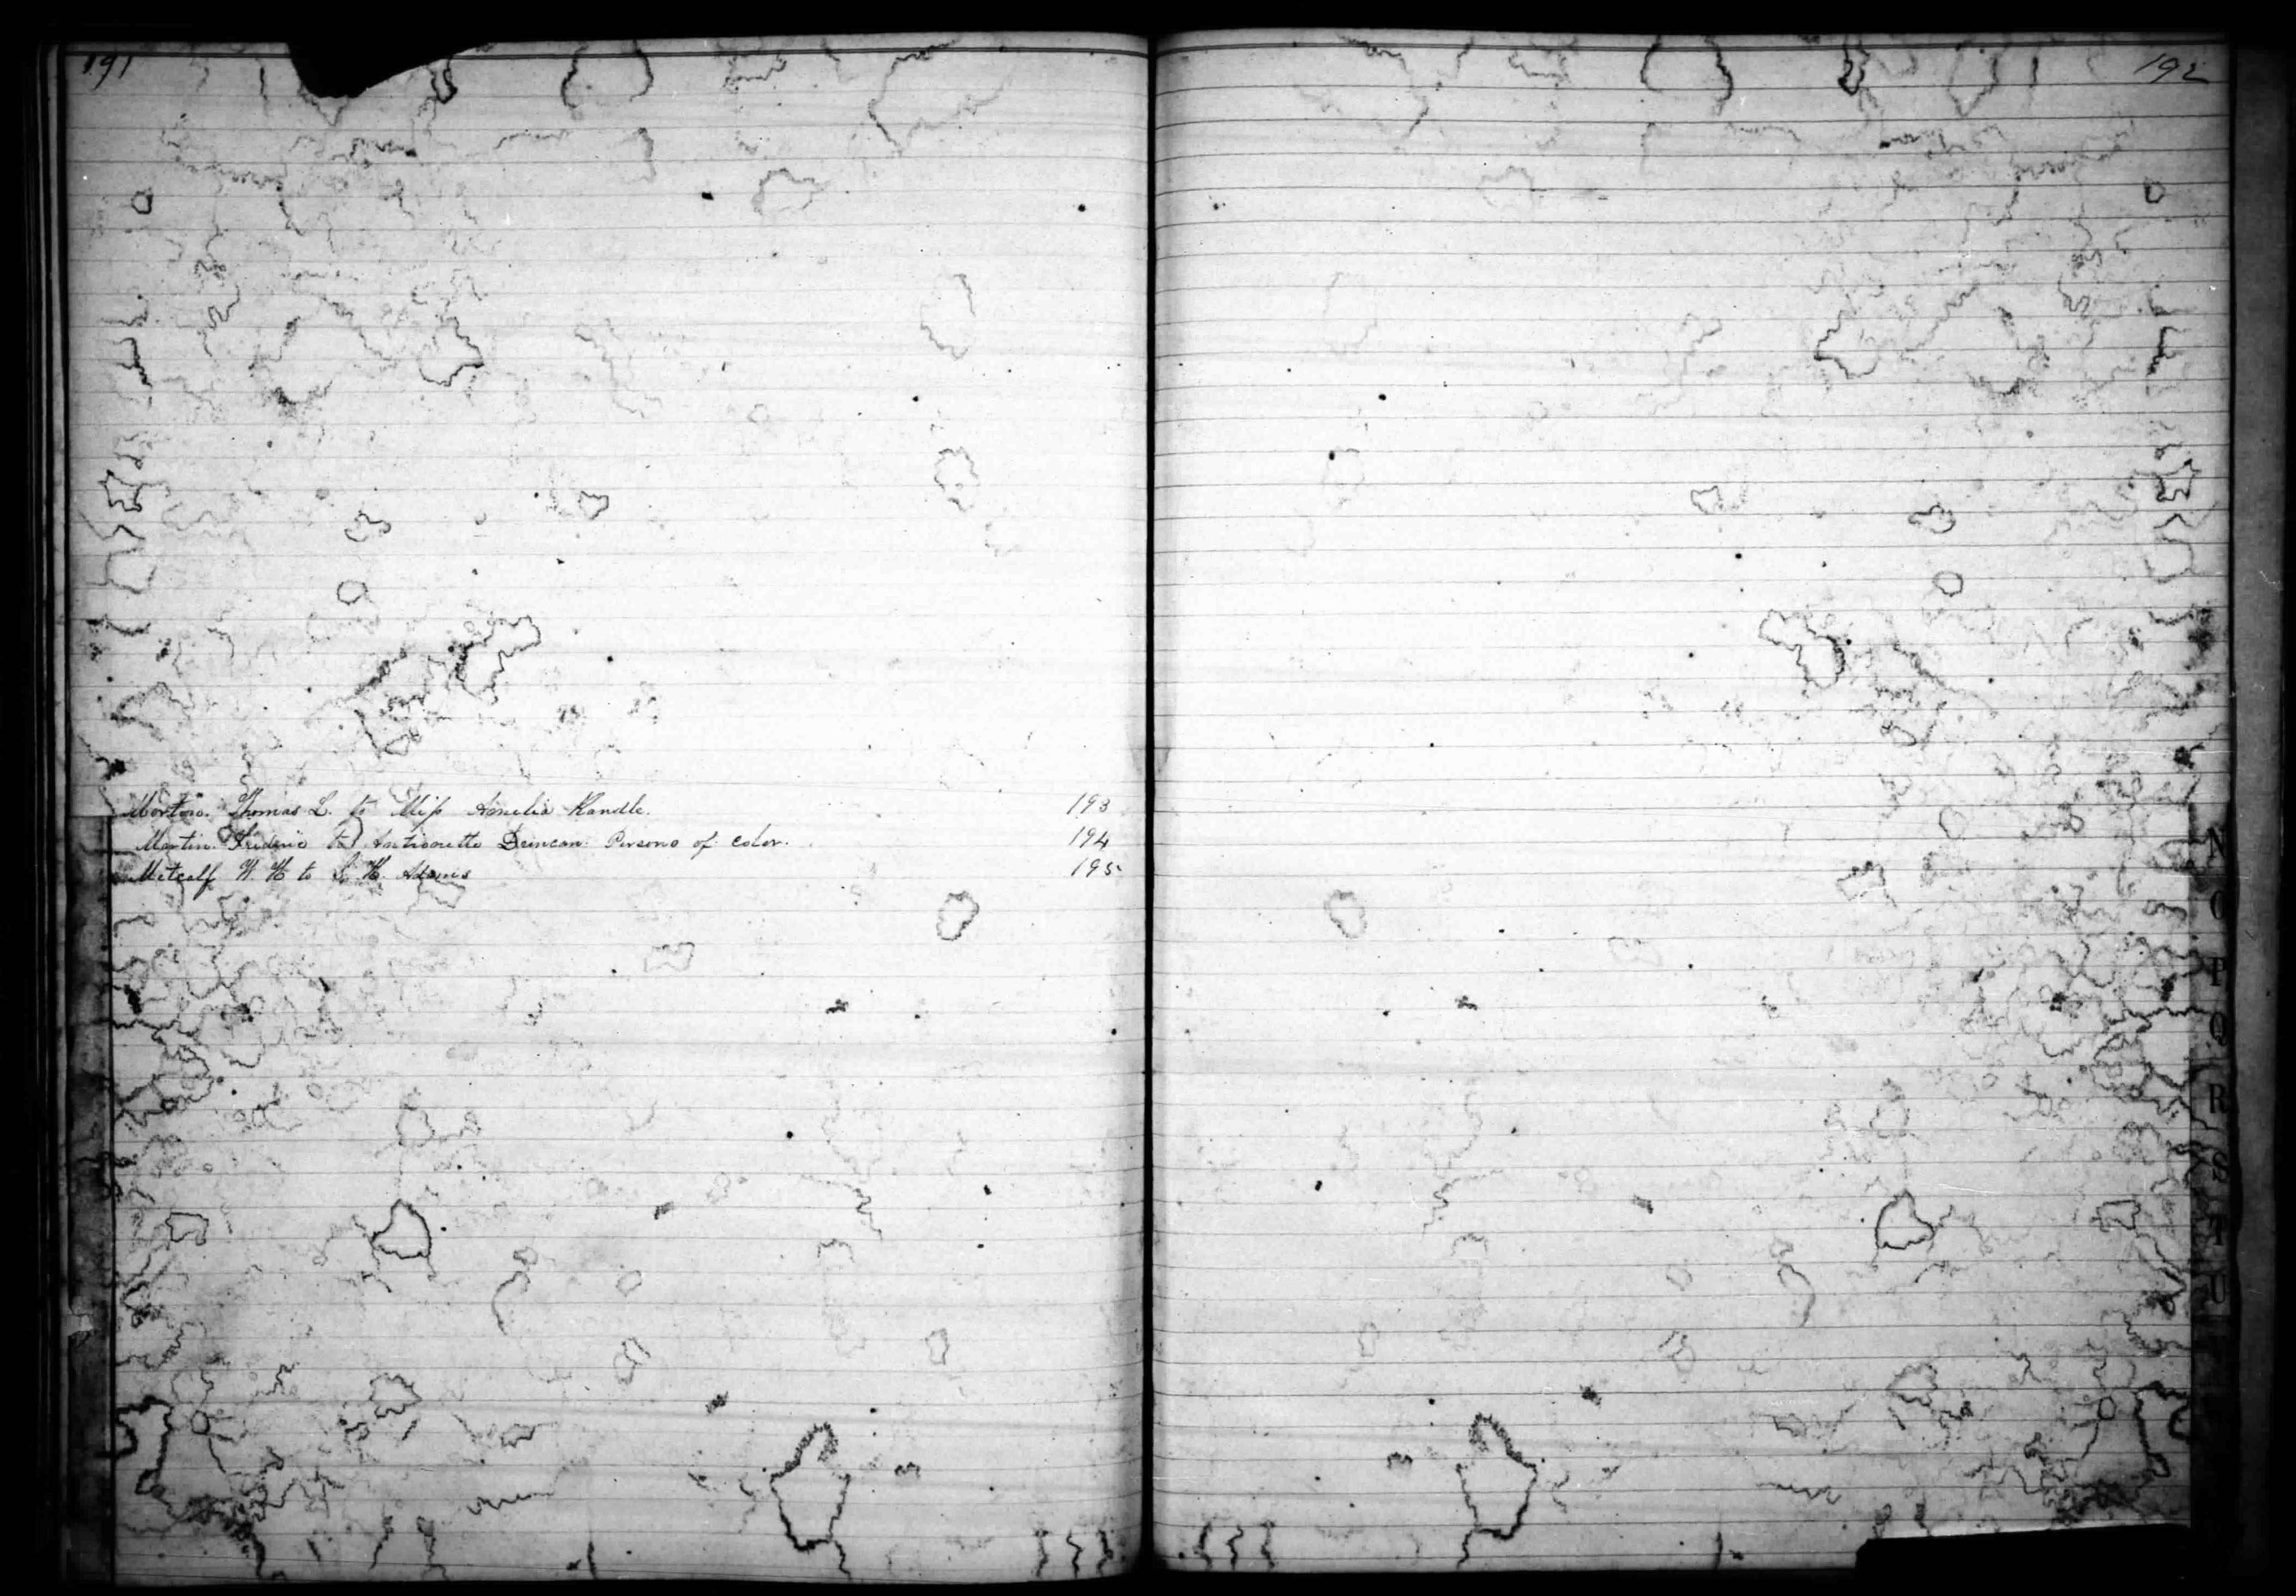 191
Morton. Thomas L. to Miss Amelia Randle. 193
Martin. Frederic to Antionette Duncan. Persons of color. 194
Metcalf W. H to S. H. Adams 195
192
N
O
P
Q
R
S
T
U